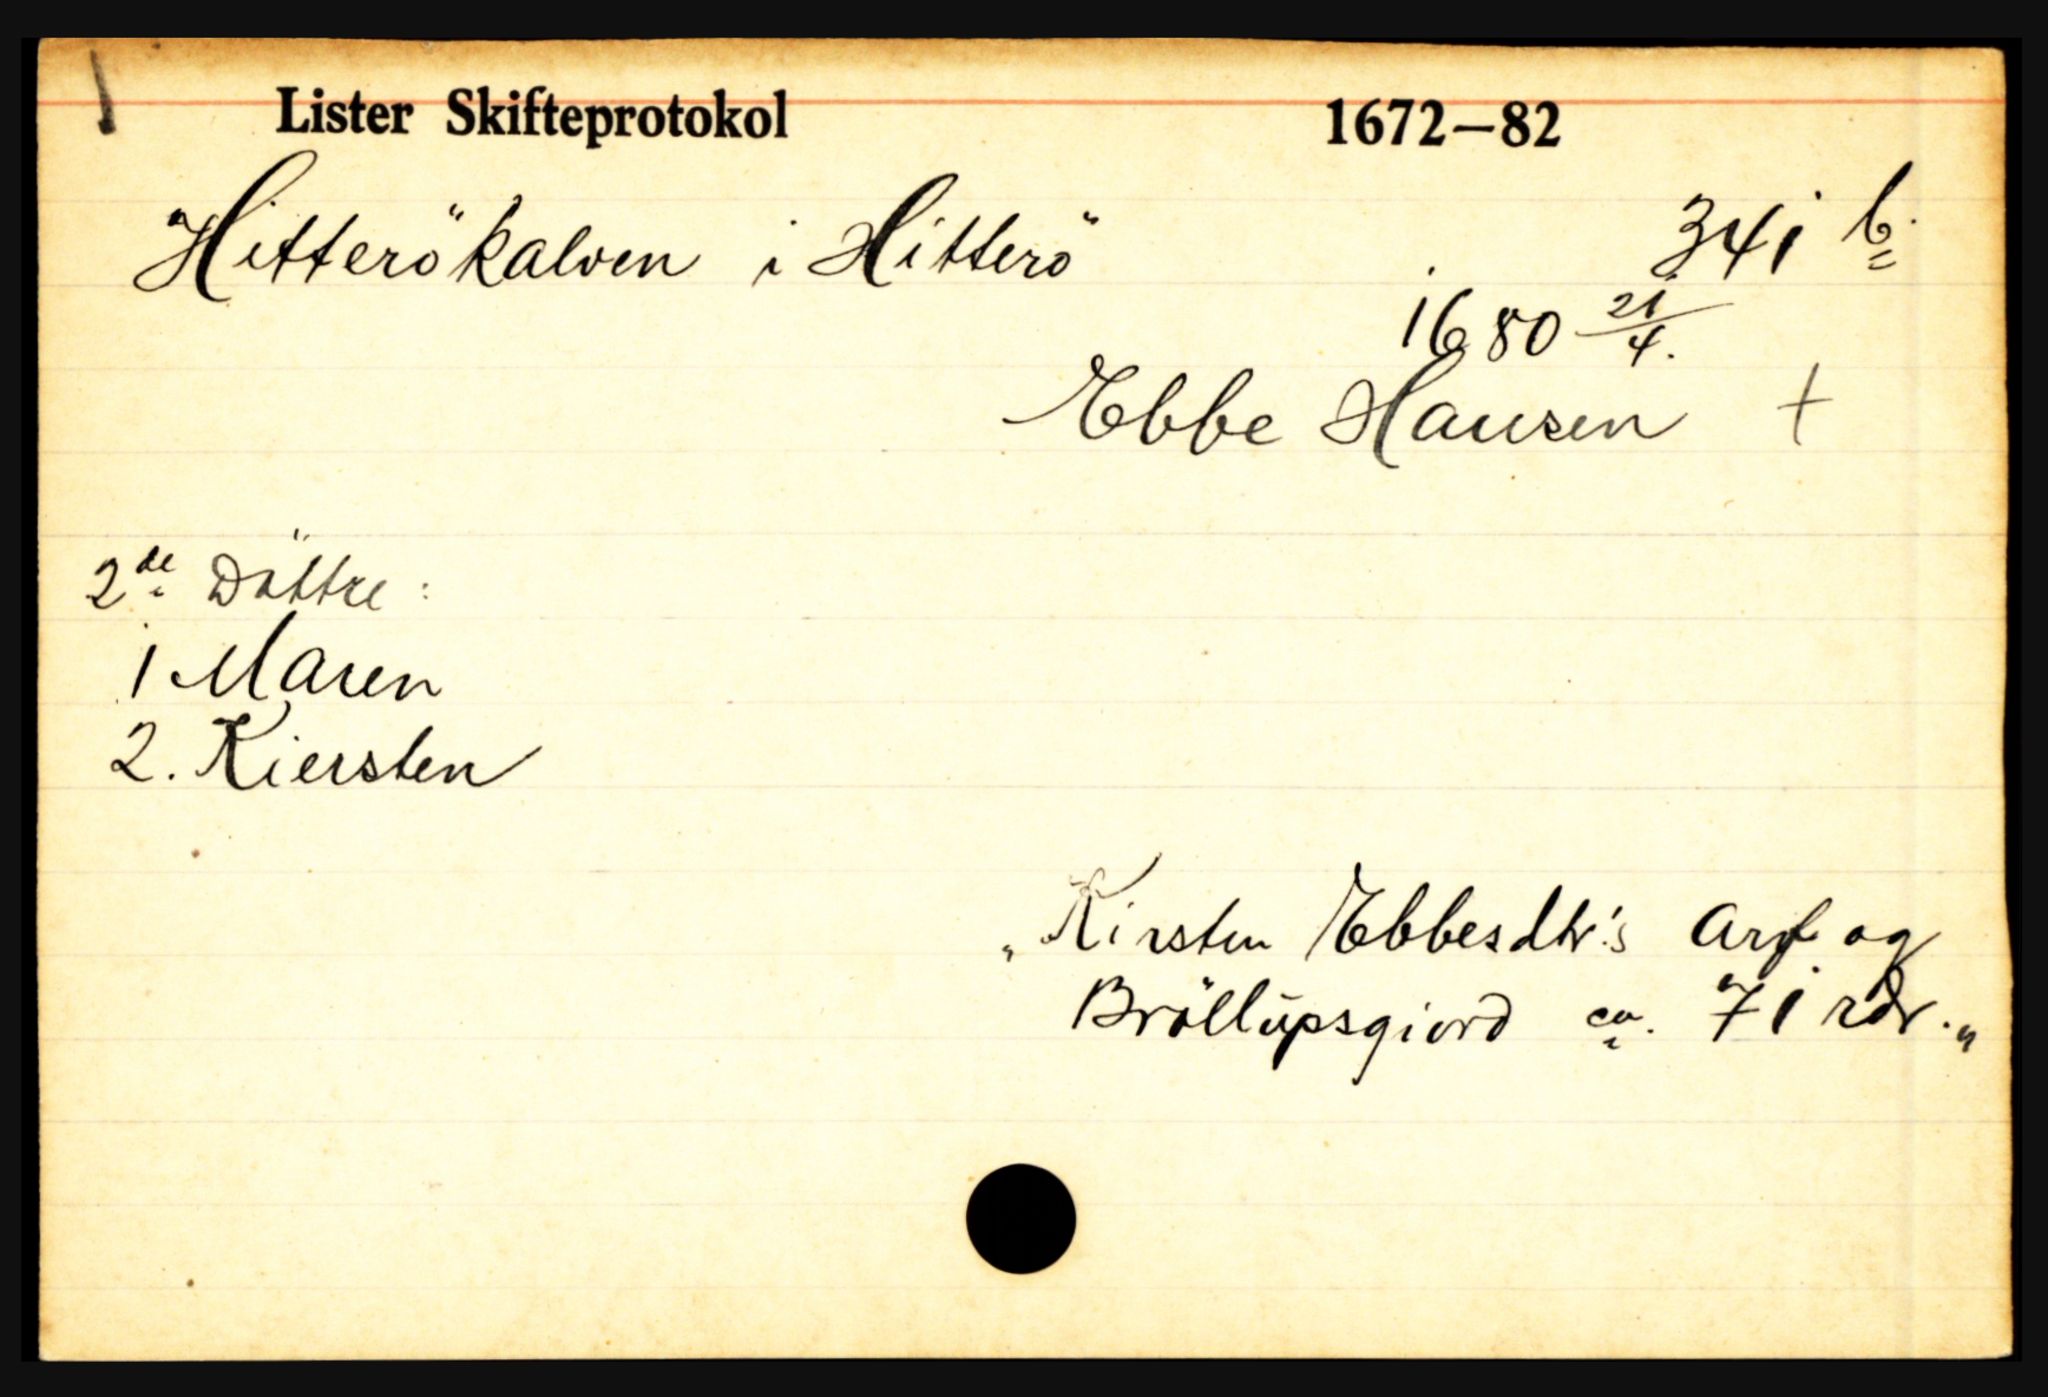 1
Lister Skifteprotokol 1672–82
Hitterökalven i Hitterö 341 b.
1680 21/4.
Ebbe Hansen +
2de Döttre:
1 Maren
2. Kiersten
„Kirsten Ebbesdtr.'s Arf og
Bröllupsgiord ca. 71 rdr.„